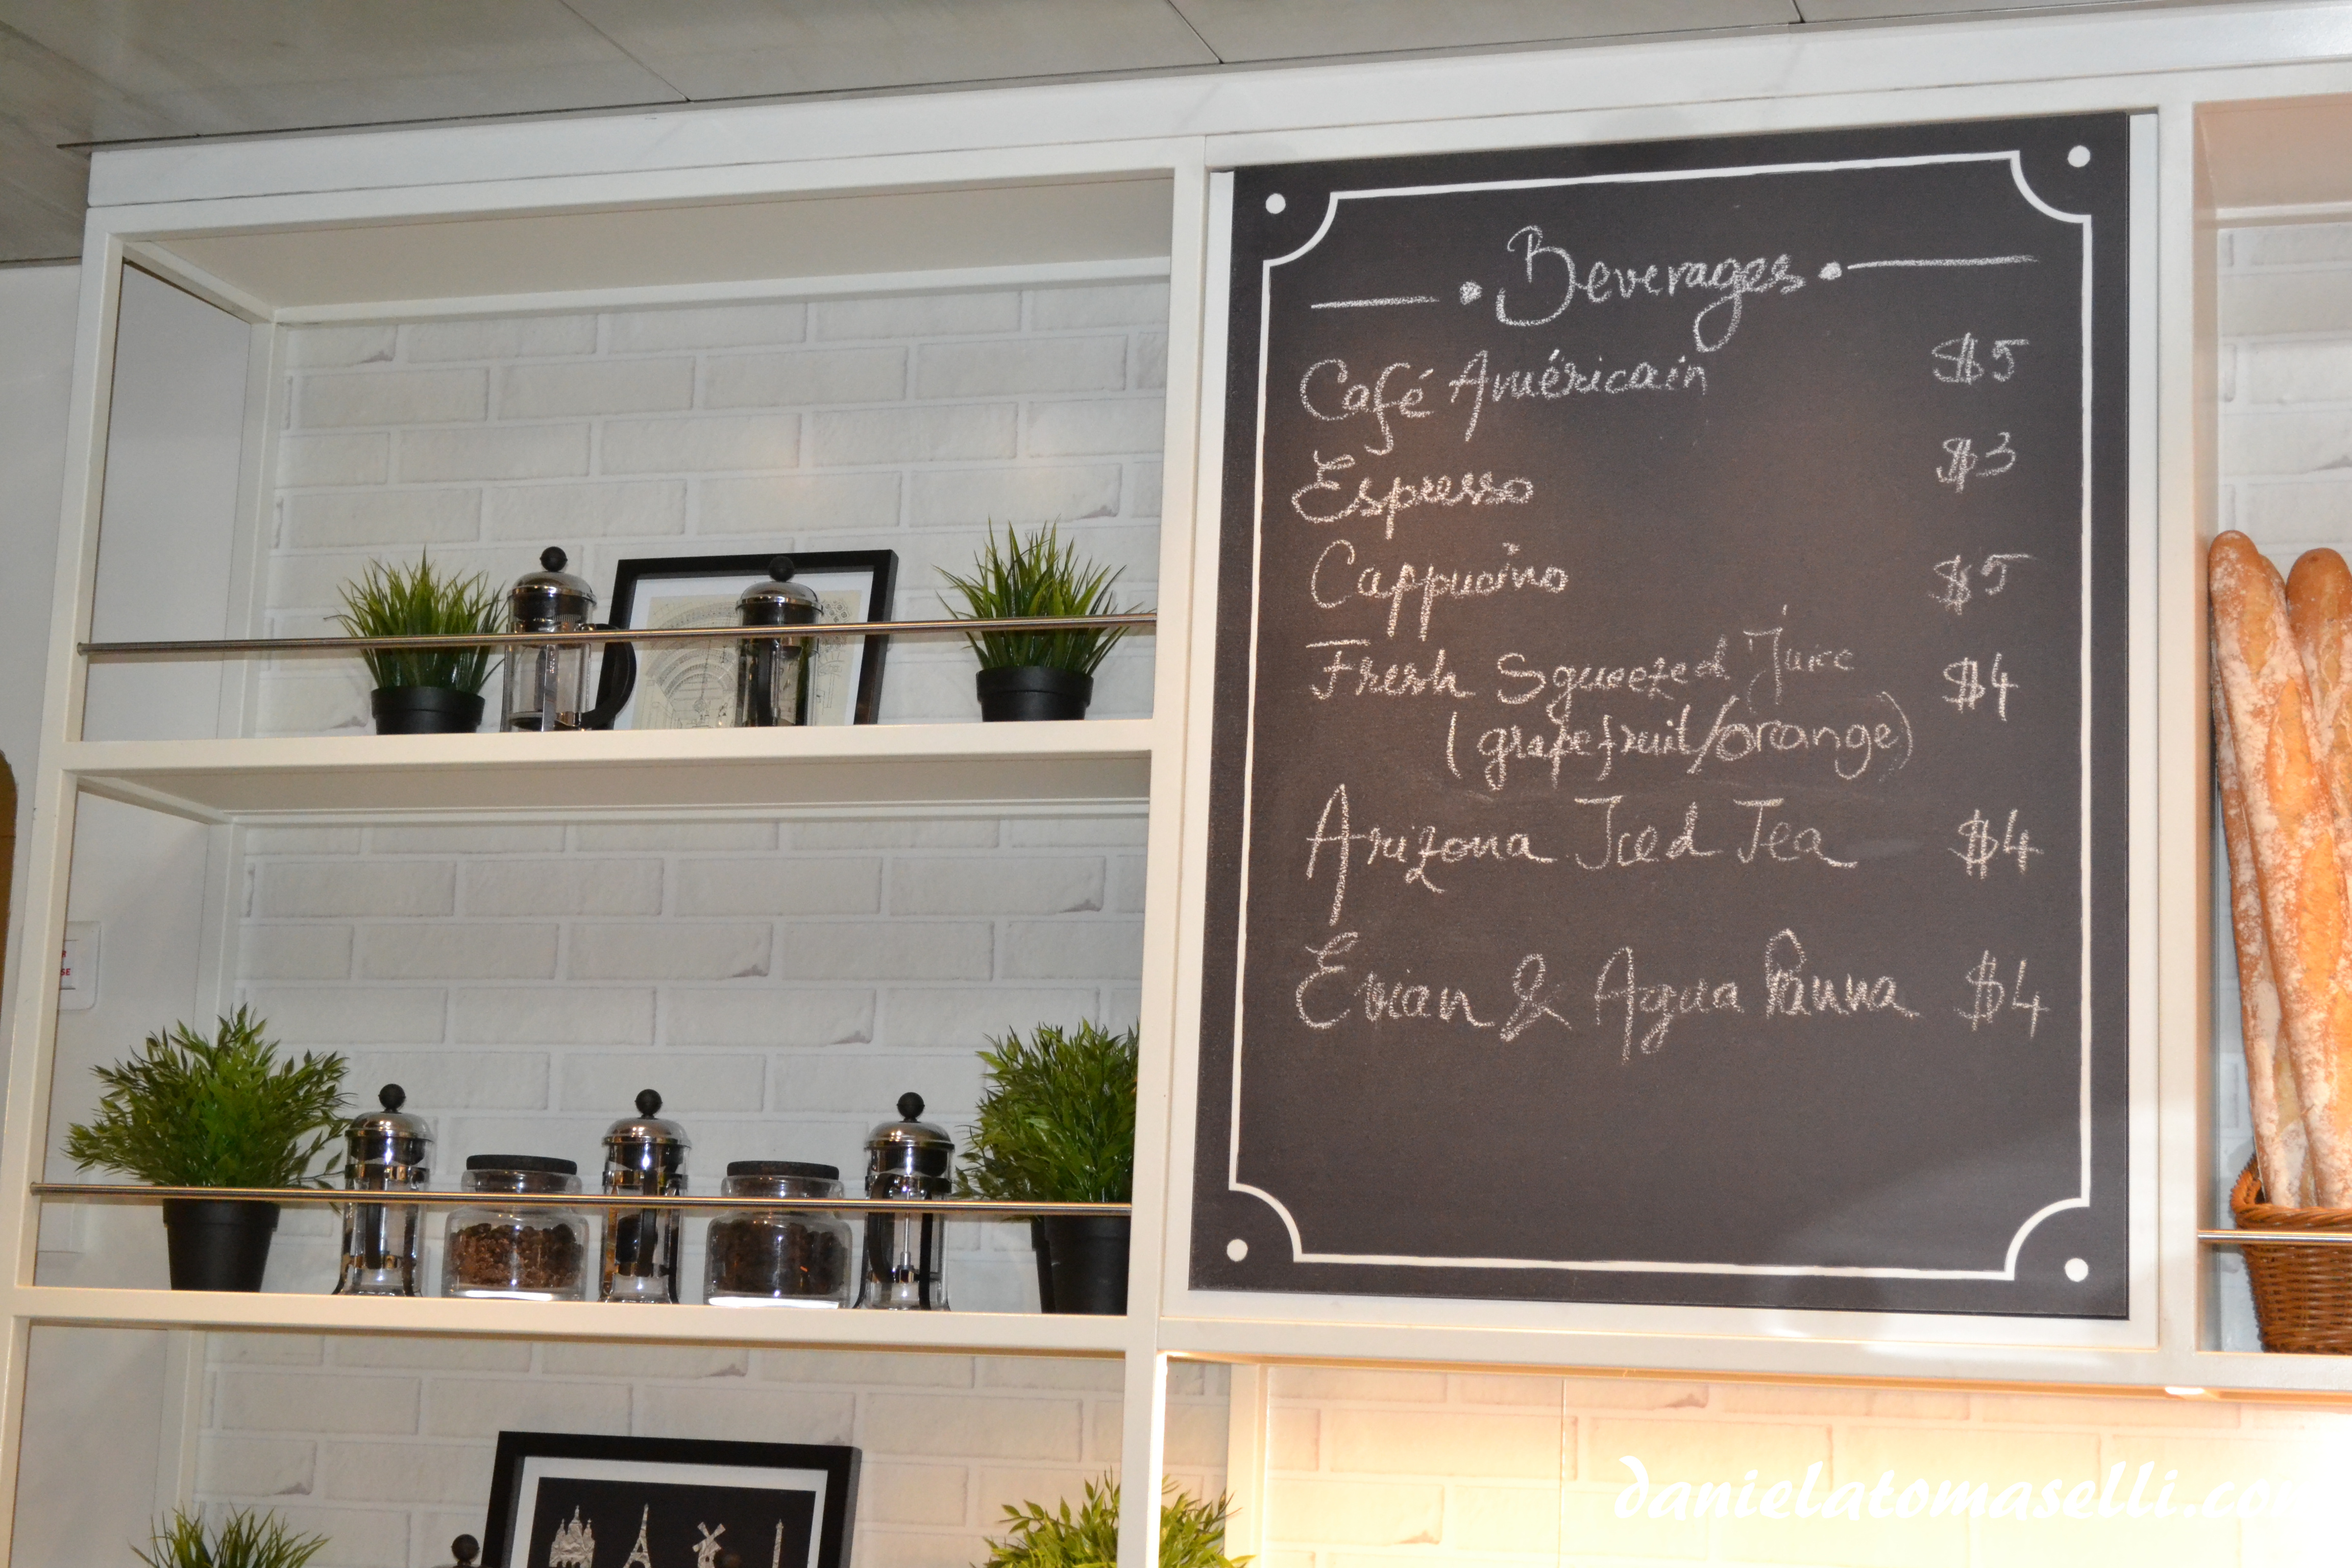 Beverages
Café Américain $5
Espresso $3
Cappucino $5
Fresh Squeezed Juice $4
(grapefruit/orange)
Arizona Iced Tea $4
Evian & Agua Panna $4
danielatomaselli.co